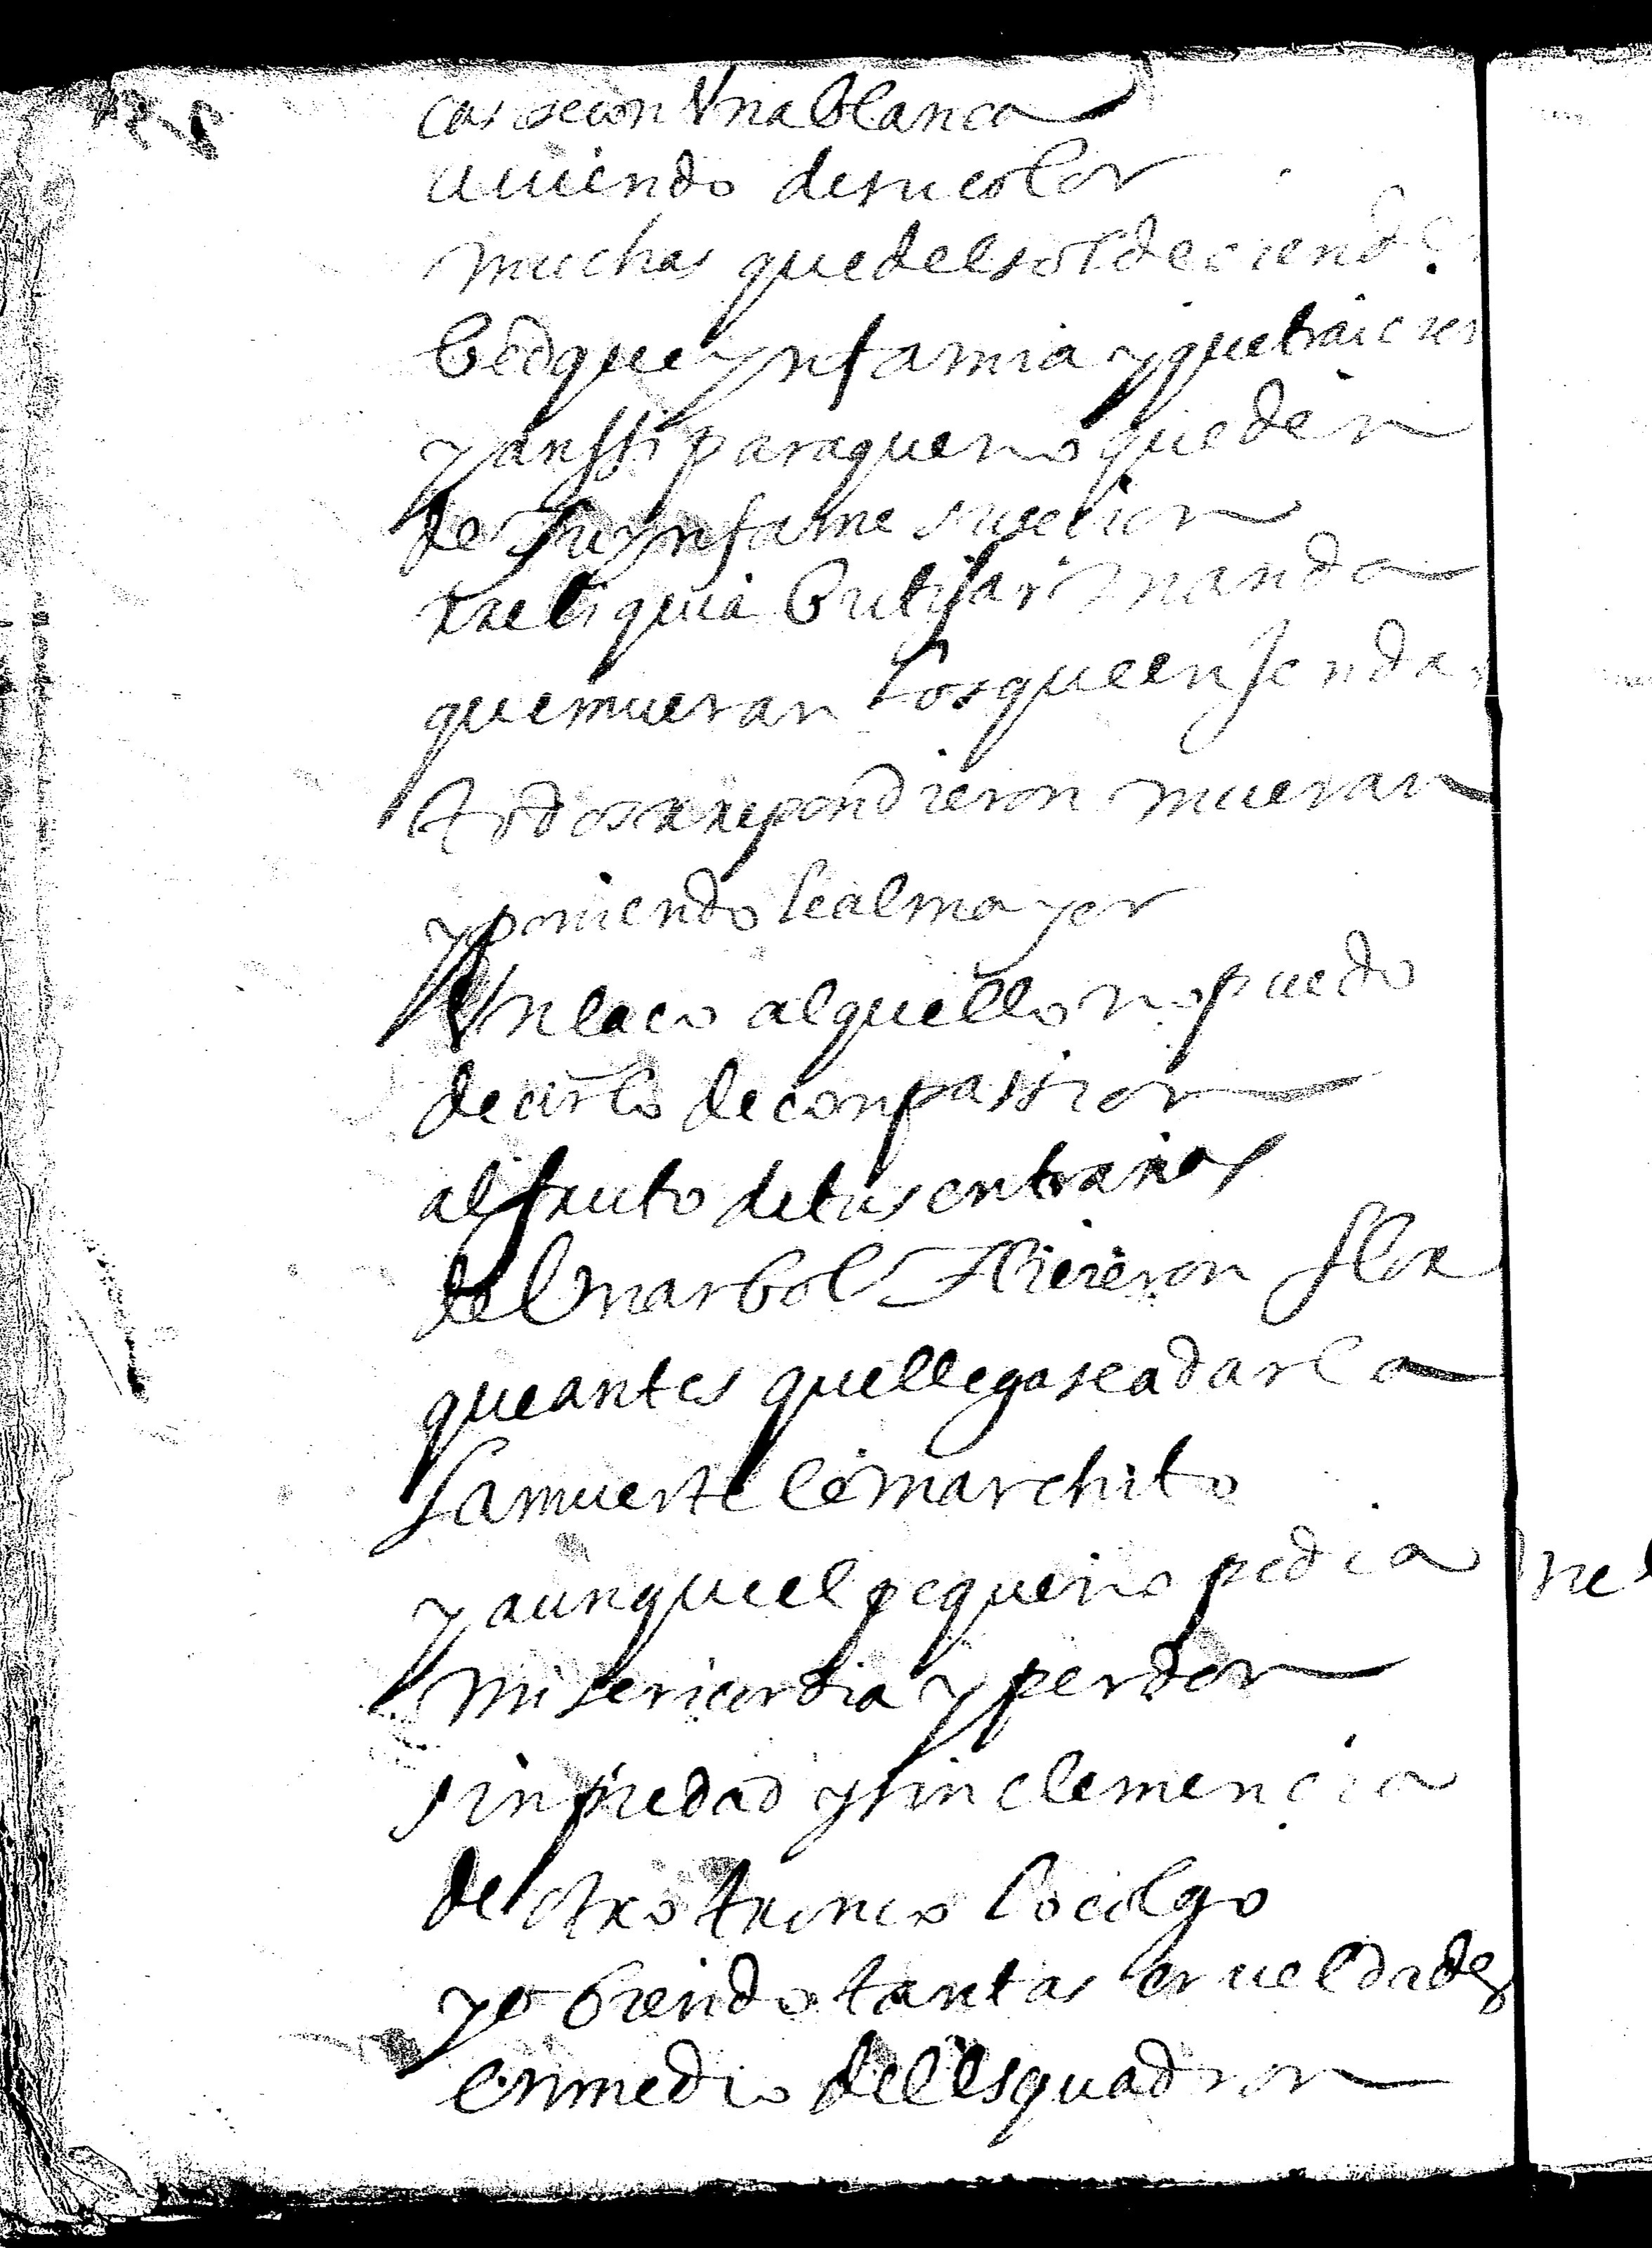 casose con Vna blanca
auiendo de su color
muchas que del sol decienden
bed que ynfamia y que traicion
y ansi para que no queden
de su ynfame sucecion
rreliquia butifar manda
que mueran los que enjendro
todos rrespondieron mueran
y poniendole al mayor
Vn laço al quello no puedo
decirlo de conpassion
al fruto de tus entrañas
del marbol hicieron flor
que antes que llegase a darla
la muerte le marchito
y aunque el pequeño pedia
misericordia y perdon
sin piedad y sin clemencia
de otro tronco lo colgo
yo biendo tantas crueldades
en medio del esquadron